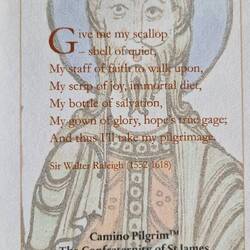 Give me my scallop
– shell of quiet,
My staff of faith to walk upon,
My scrip of joy, immortal diet,
My bottle of salvation,
My gown of glory, hope's true gage;
And thus I'll take my pilgrimage.
Sir Walter Raleigh (1552-1618)
Camino Pilgrim™
The Confraternity of St James